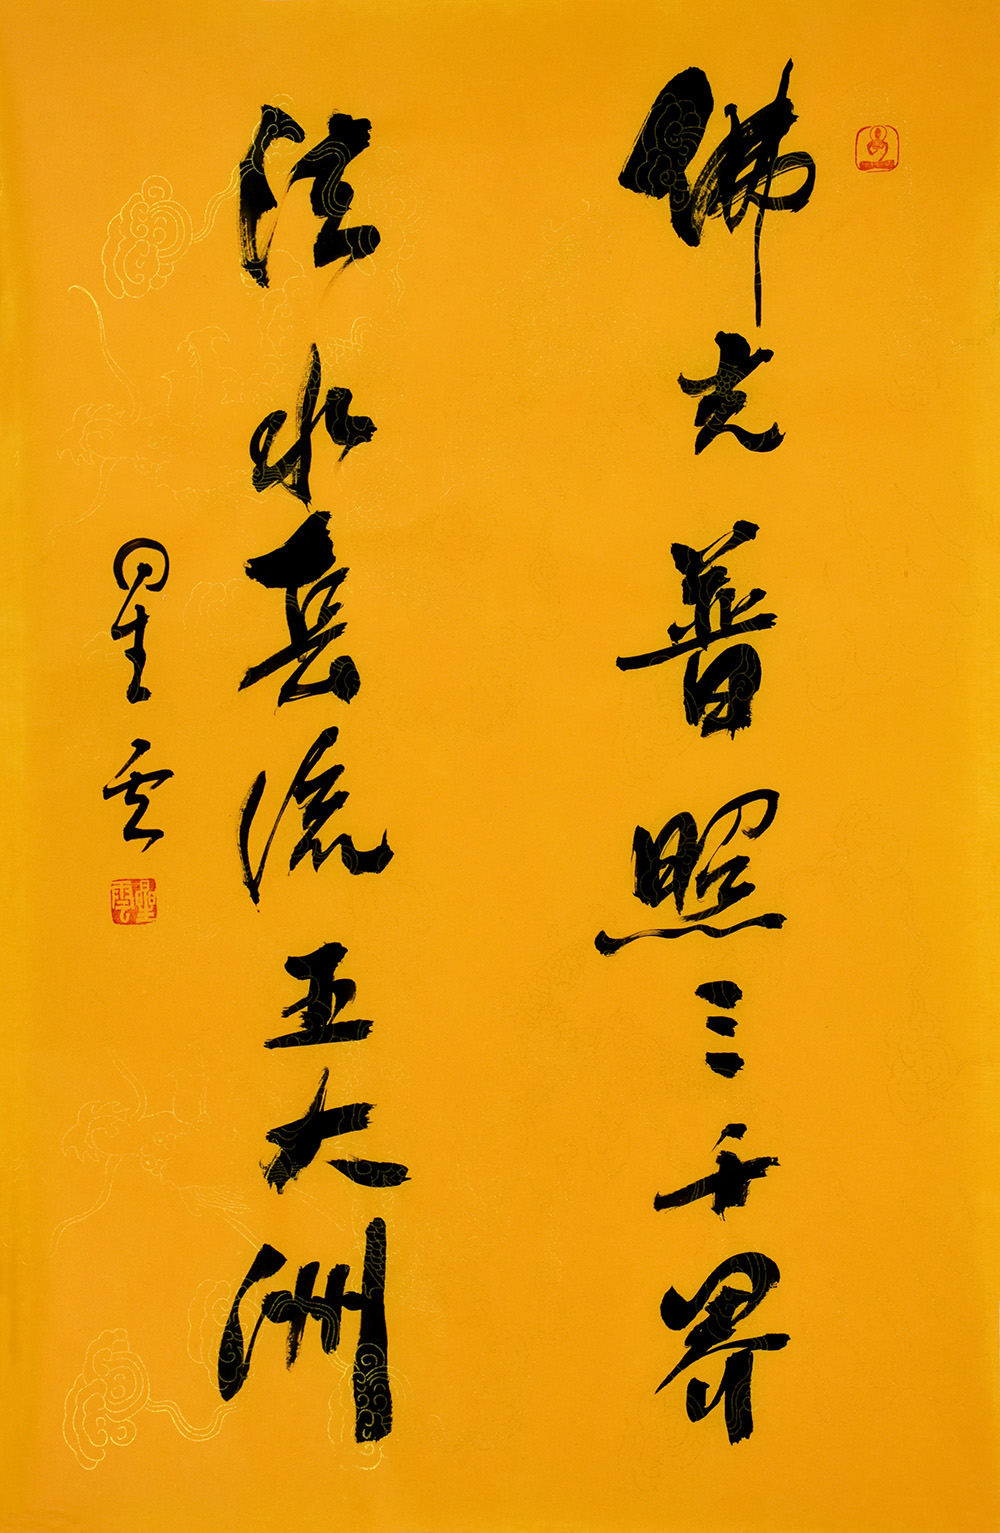 佛光普照三千界
法水長流五大洲
星云
星雲